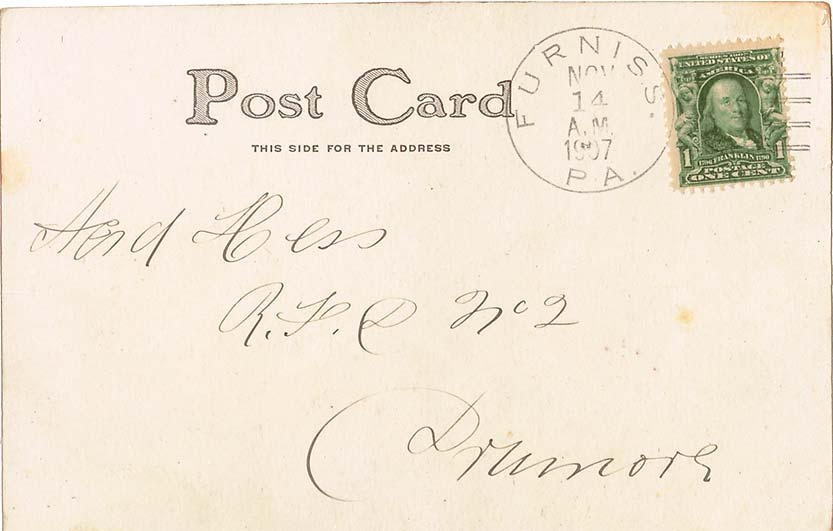 Post Card
THIS SIDE FOR THE ADDRESS
FURNISS.
NOV
14
A.M.
1907
PA.
SERIES 1902
UNITED STATES OF
AMERICA
1706 FRANKLIN 1790
1 1
POSTAGE
ONE CENT
Hess
R.F.D No 2
Drumore